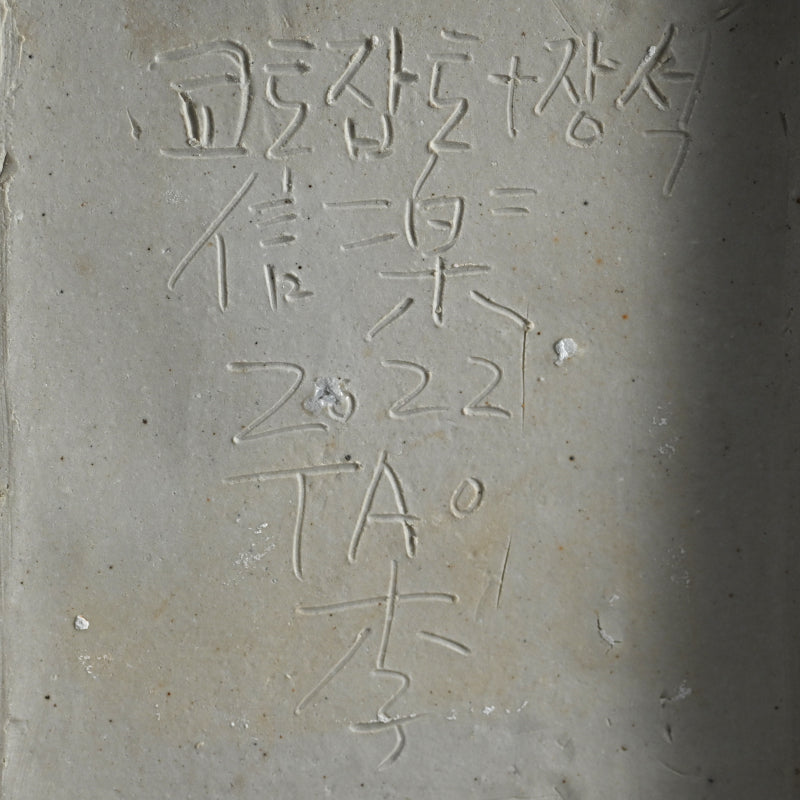 교토잡토+장석
信楽
2022
TAO
李